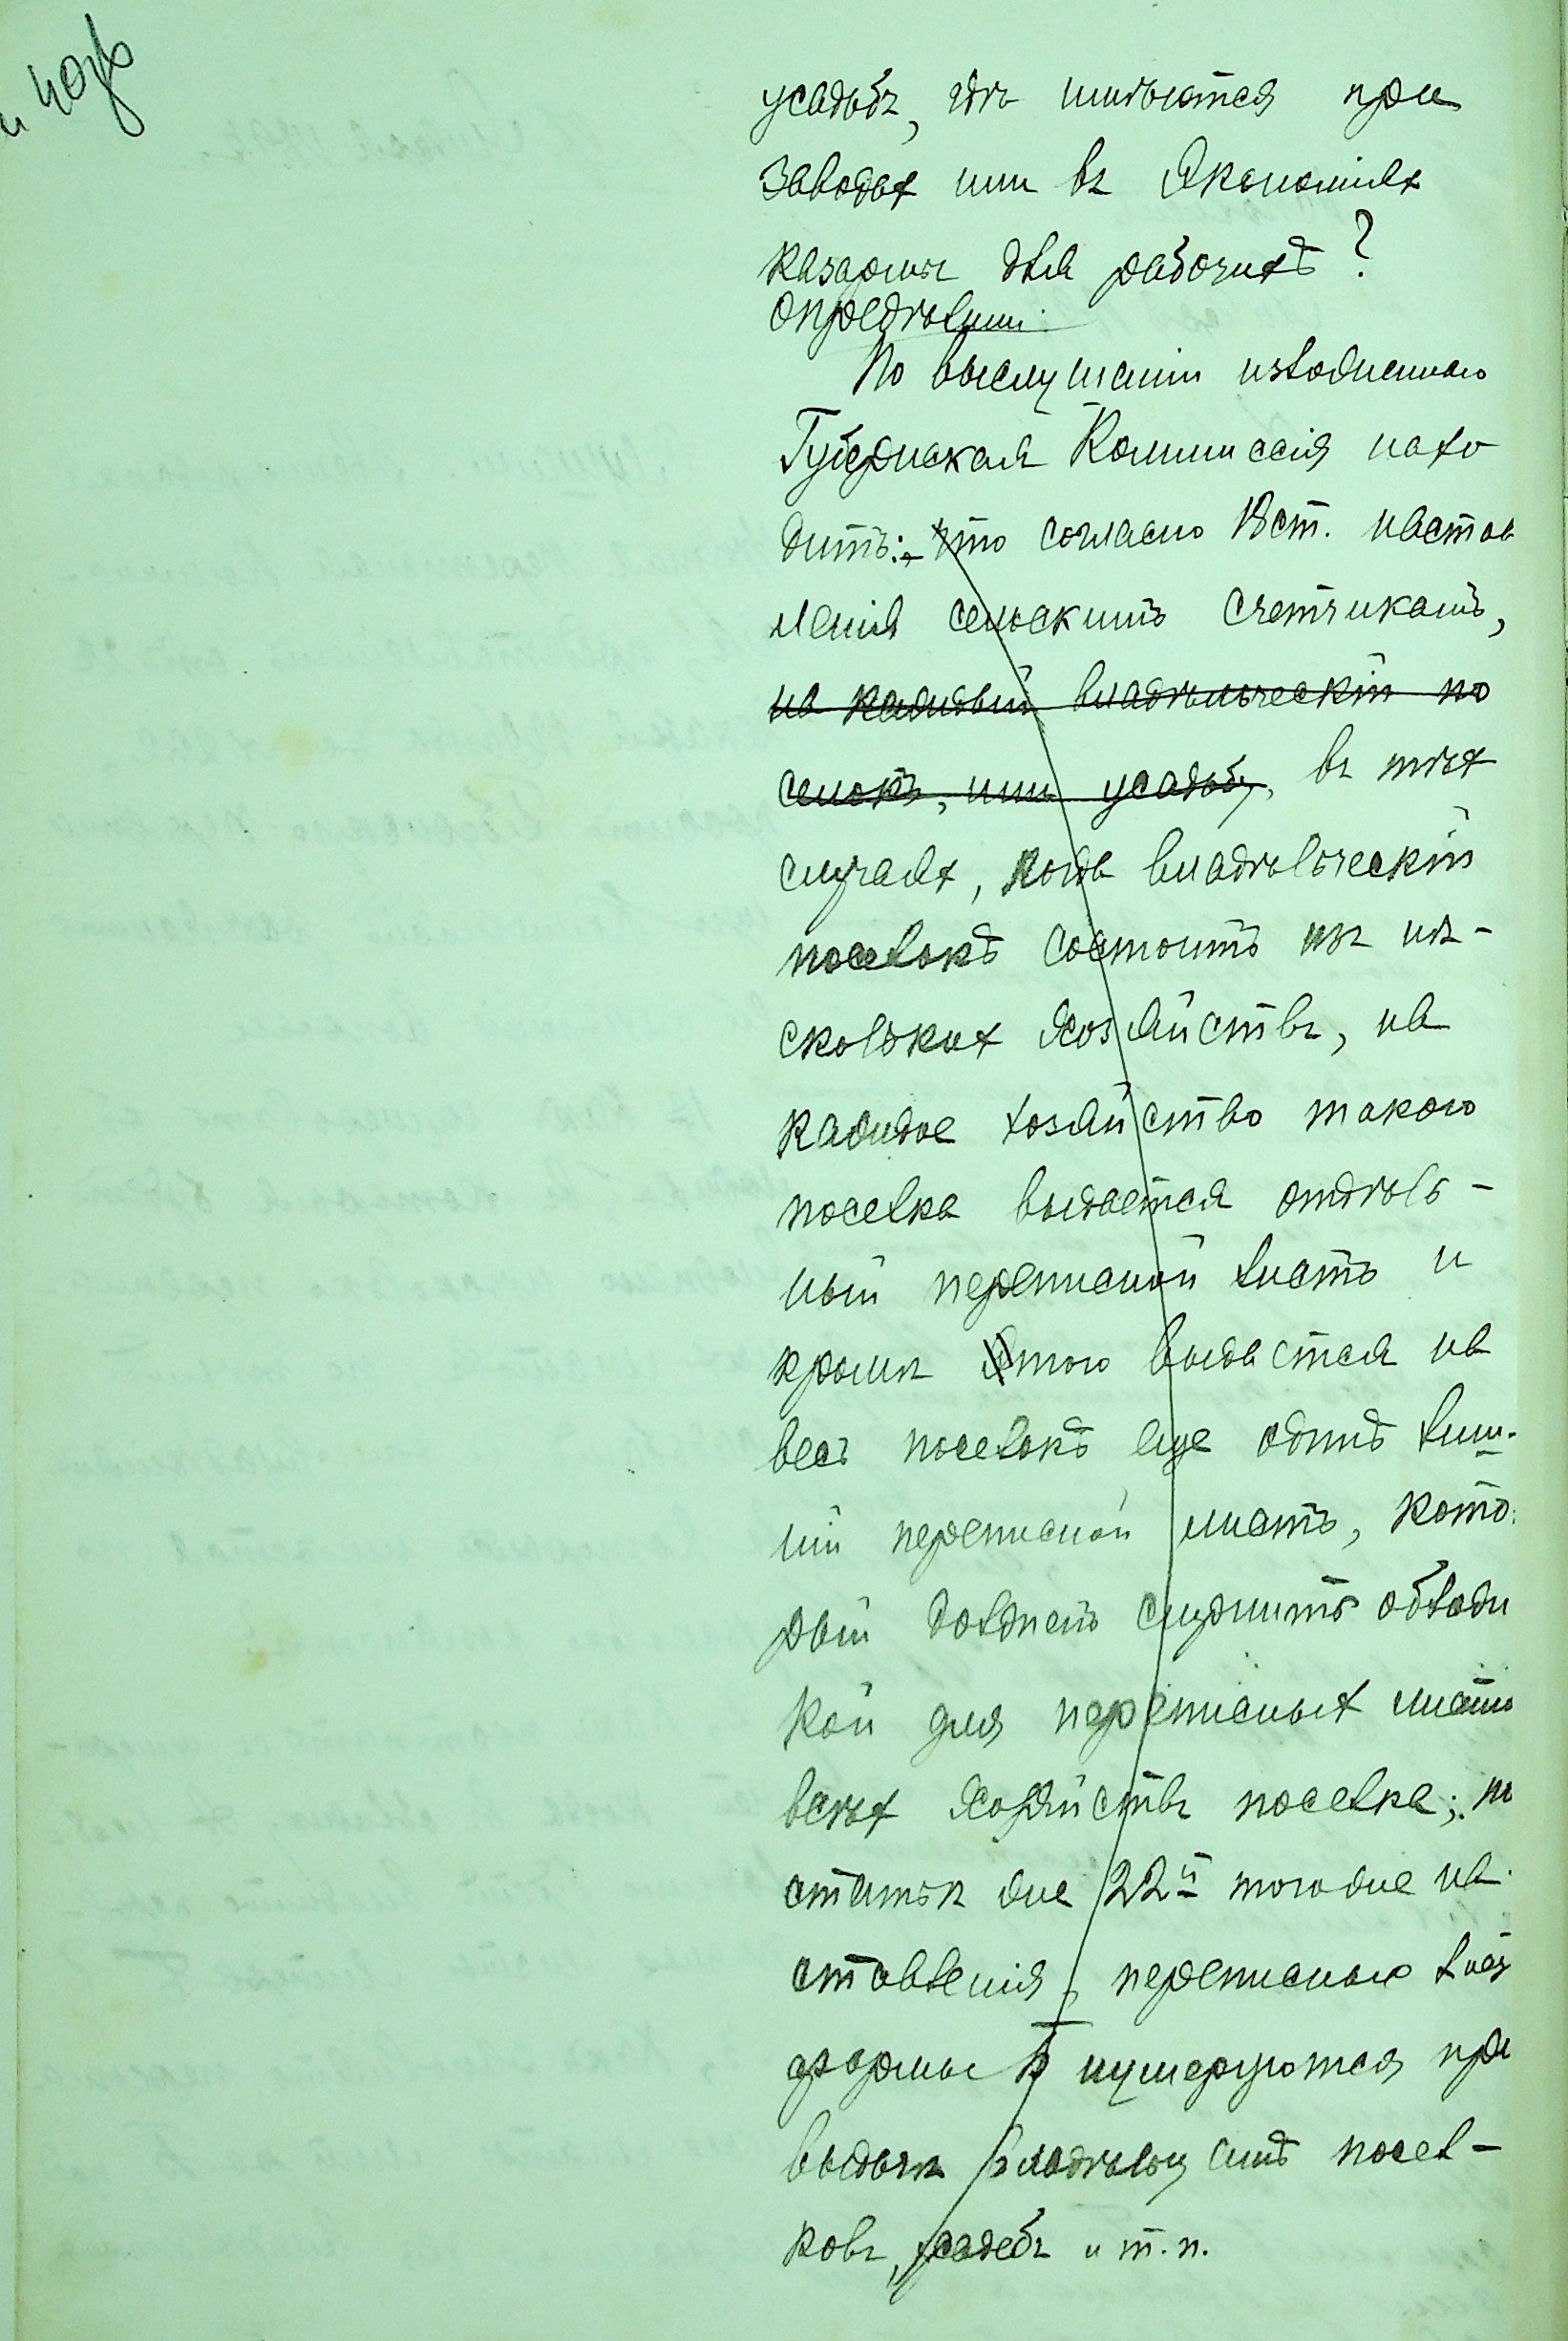 усадьбѣ, гдѣ имѣются при
заводах или въ Экономіях
казармы для рабочихъ?
Опредѣлили:
По выслушаніи изложеннаго
Губернская Коммиссія нахо
дитъ: что согласно 18 ст. настав
ленія сельскимъ счетчикамъ,
на каждый владѣльческій по
селокъ, или усадьбу, въ тѣх
случаях, когда владѣльческій
поселокъ состоитъ изъ нѣ-
скольких хозяйствъ, на
каждое хозяйство такого
поселка выдается отдѣль-
ный переписной листъ и
кромѣ этого выдается на
весь поселокъ еще одинъ лиш-
ній переписной листъ, кото-
рый долженъ служить облож
кой для переписных листо
всѣх хозяйствъ поселка; по
статьѣ же 22й тогоже на-
ставленія, переписные
формы Б нумеруются при
выдачѣ владѣльцамъ посел-
ковъ, усадебъ и т.п.